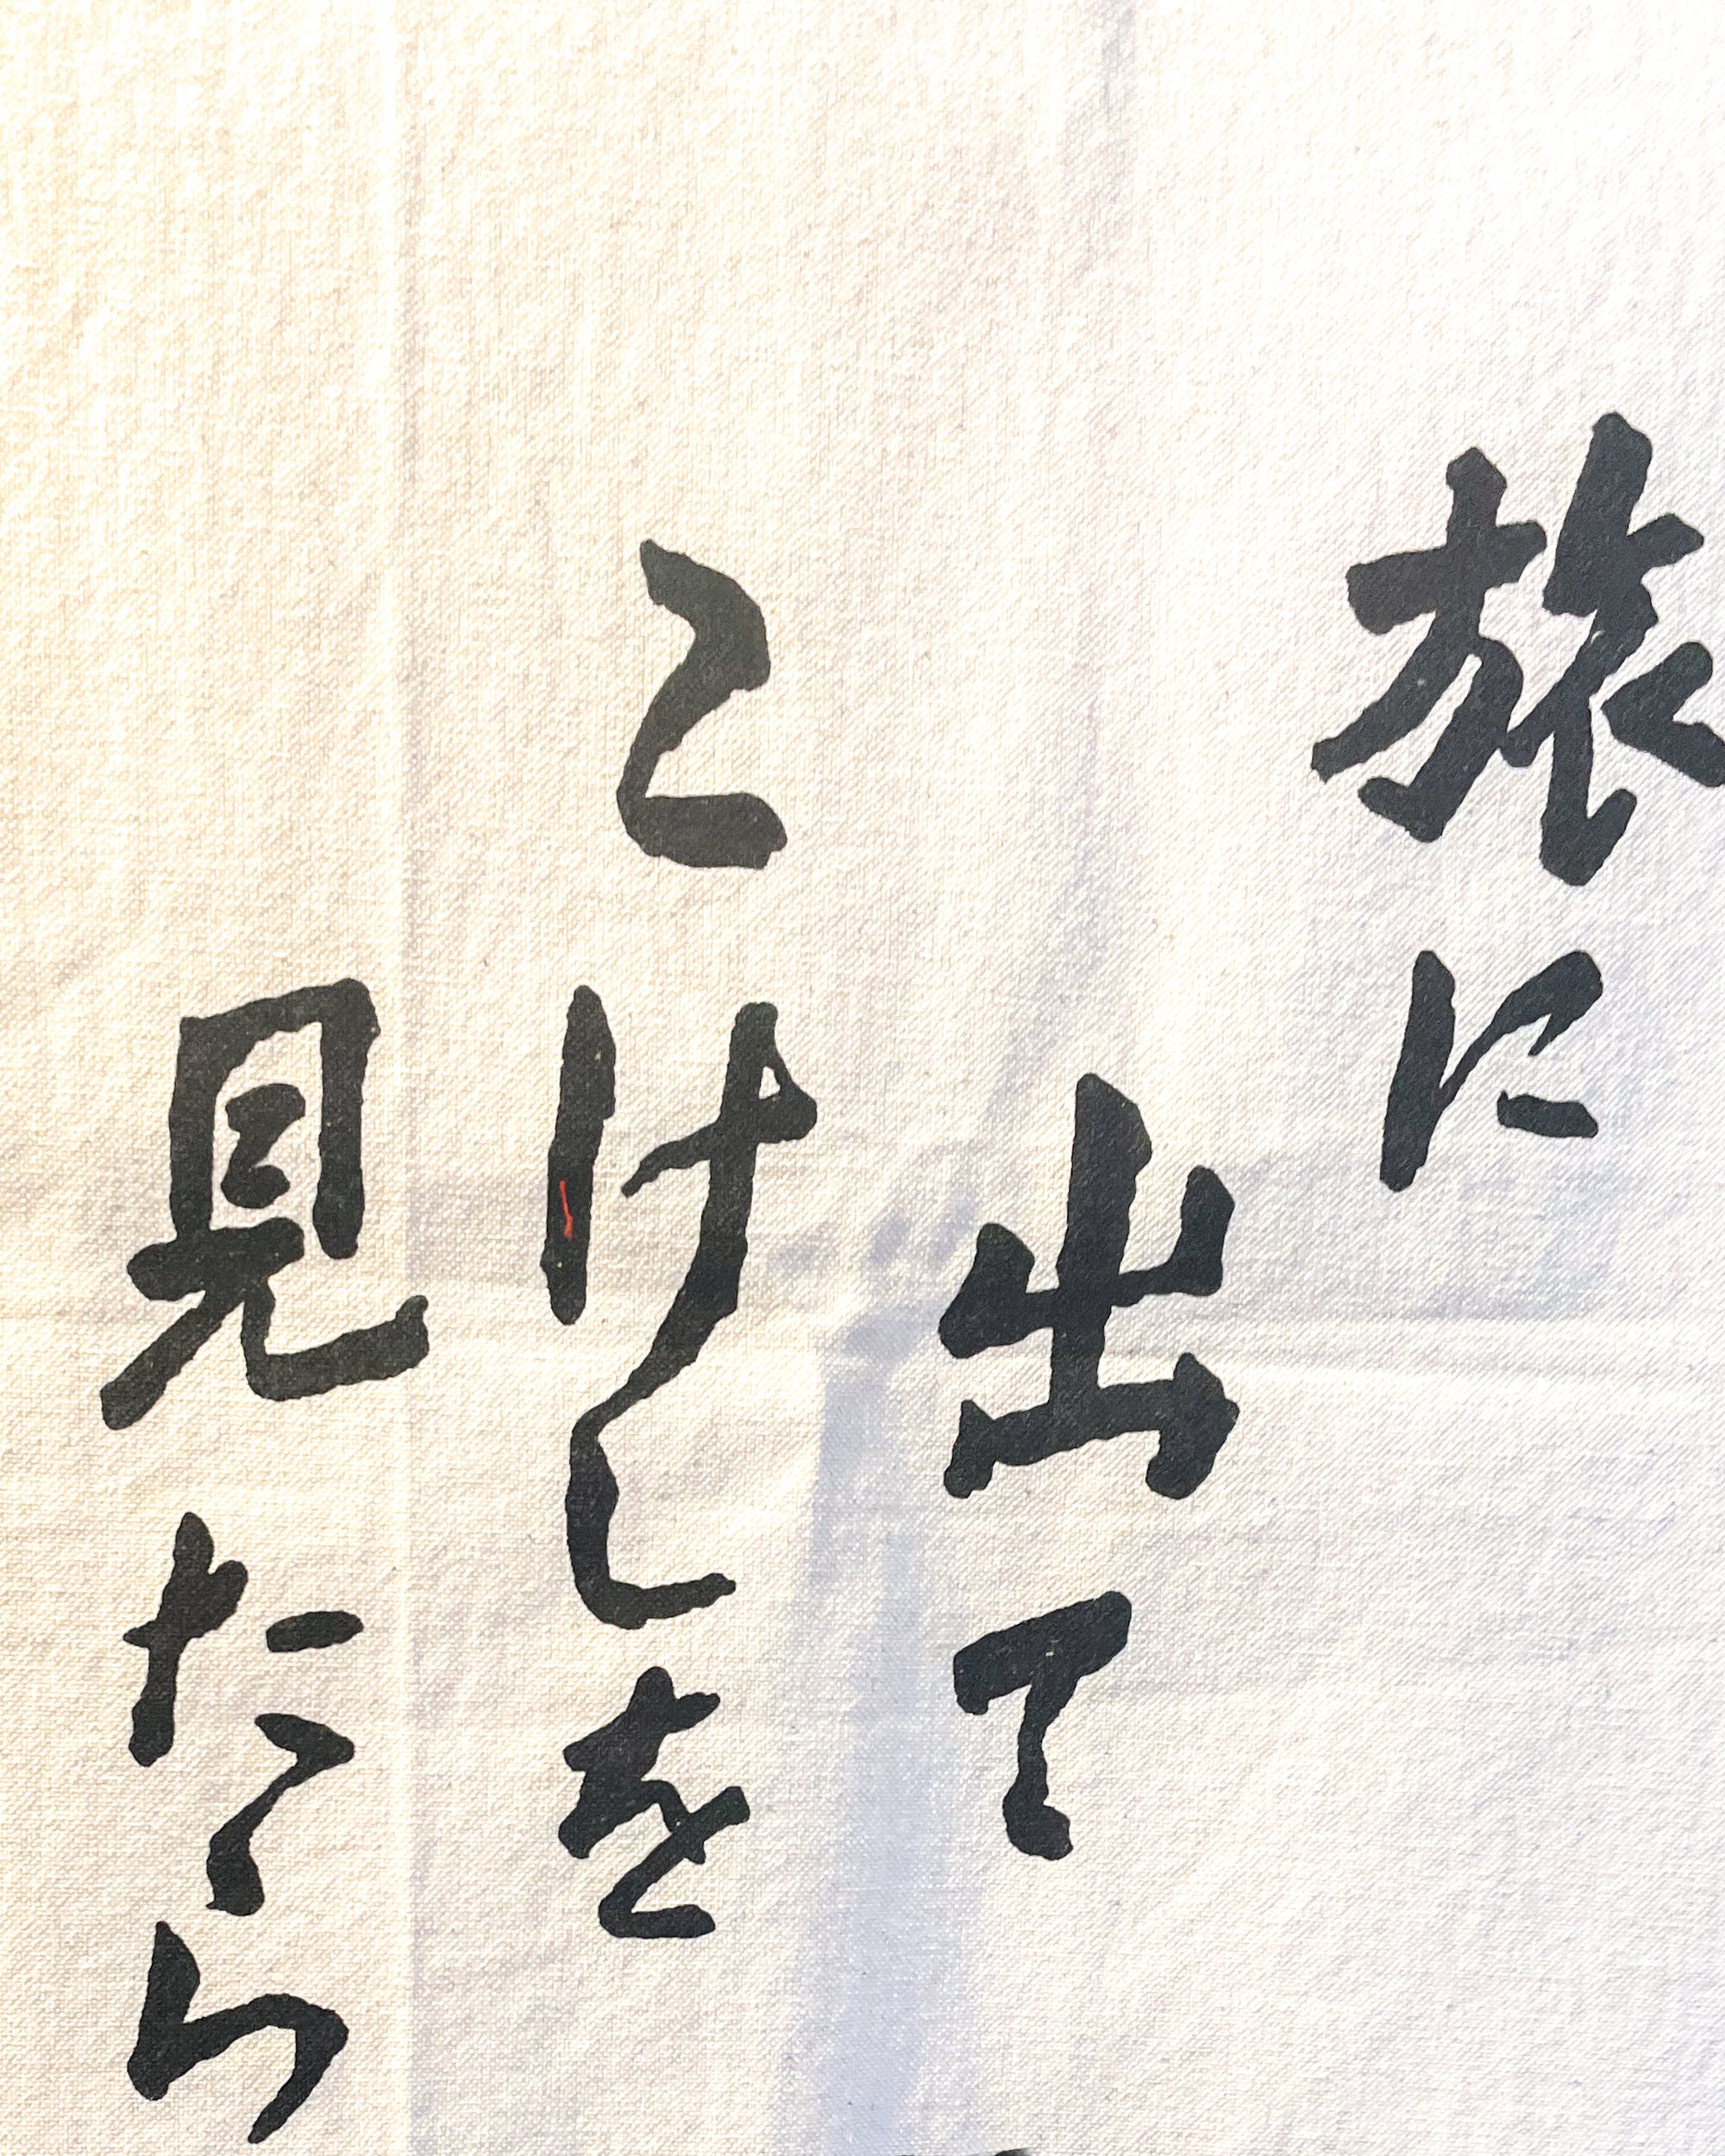 旅に
出て
こけしを
見たら